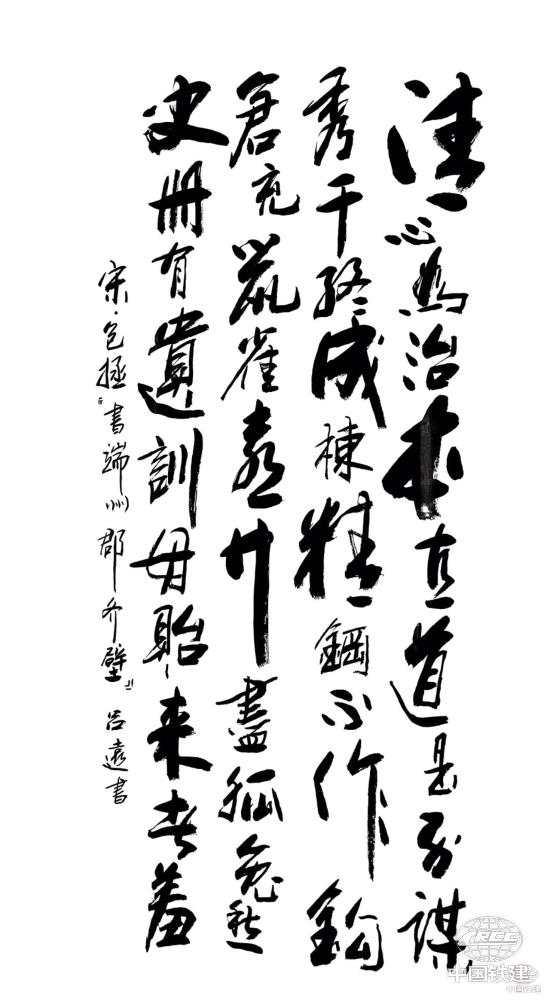 清心為治本直道是身謀
秀干終成棟精鋼不作鈎
倉充鼠雀喜艸盡狐兔愁
史冊有遺訓毋貽来者羞
宋·包拯『書端州郡齐壁』吕遠書
CRCC
中国铁建
中国铁建